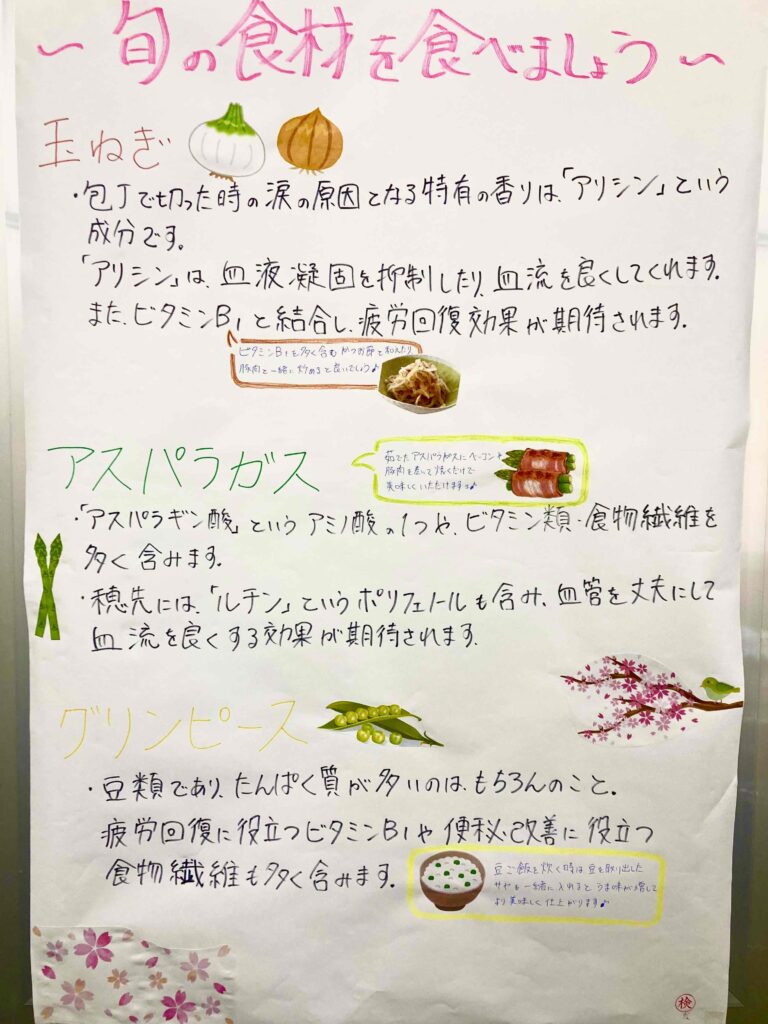 ～旬の食材を食べましょう～
玉ねぎ
・包丁で切った時の涙の原因となる特有の香りは、「アリシン」という
成分です。
「アリシン」は、血液凝固を抑制したり、血流を良くしてくれます。
また、ビタミンB1と結合し、疲労回復効果が期待されます。
ビタミンB1を多く含むかつお節と和えたり、
豚肉と一緒に炒めると良いでしょう♪
アスパラガス
茹でたアスパラガスにベーコンや
豚肉を巻いて焼くだけで
美味しくいただけますよ♪
・「アスパラギン酸」というアミノ酸の1つや、ビタミン類・食物繊維を
多く含みます。
・穂先には、「ルチン」というポリフェノールも含み、血管を丈夫にして
血流を良くする効果が期待されます。
グリンピース
・豆類であり、たんぱく質が多いのは、もちろんのこと。
疲労回復に役立つビタミンB1や便秘改善に役立つ
食物繊維も多く含みます。
豆ご飯を炊く時は、豆を取り出した
サヤも一緒に入れるとうま味が増して
より美味しく仕上がります♪
検